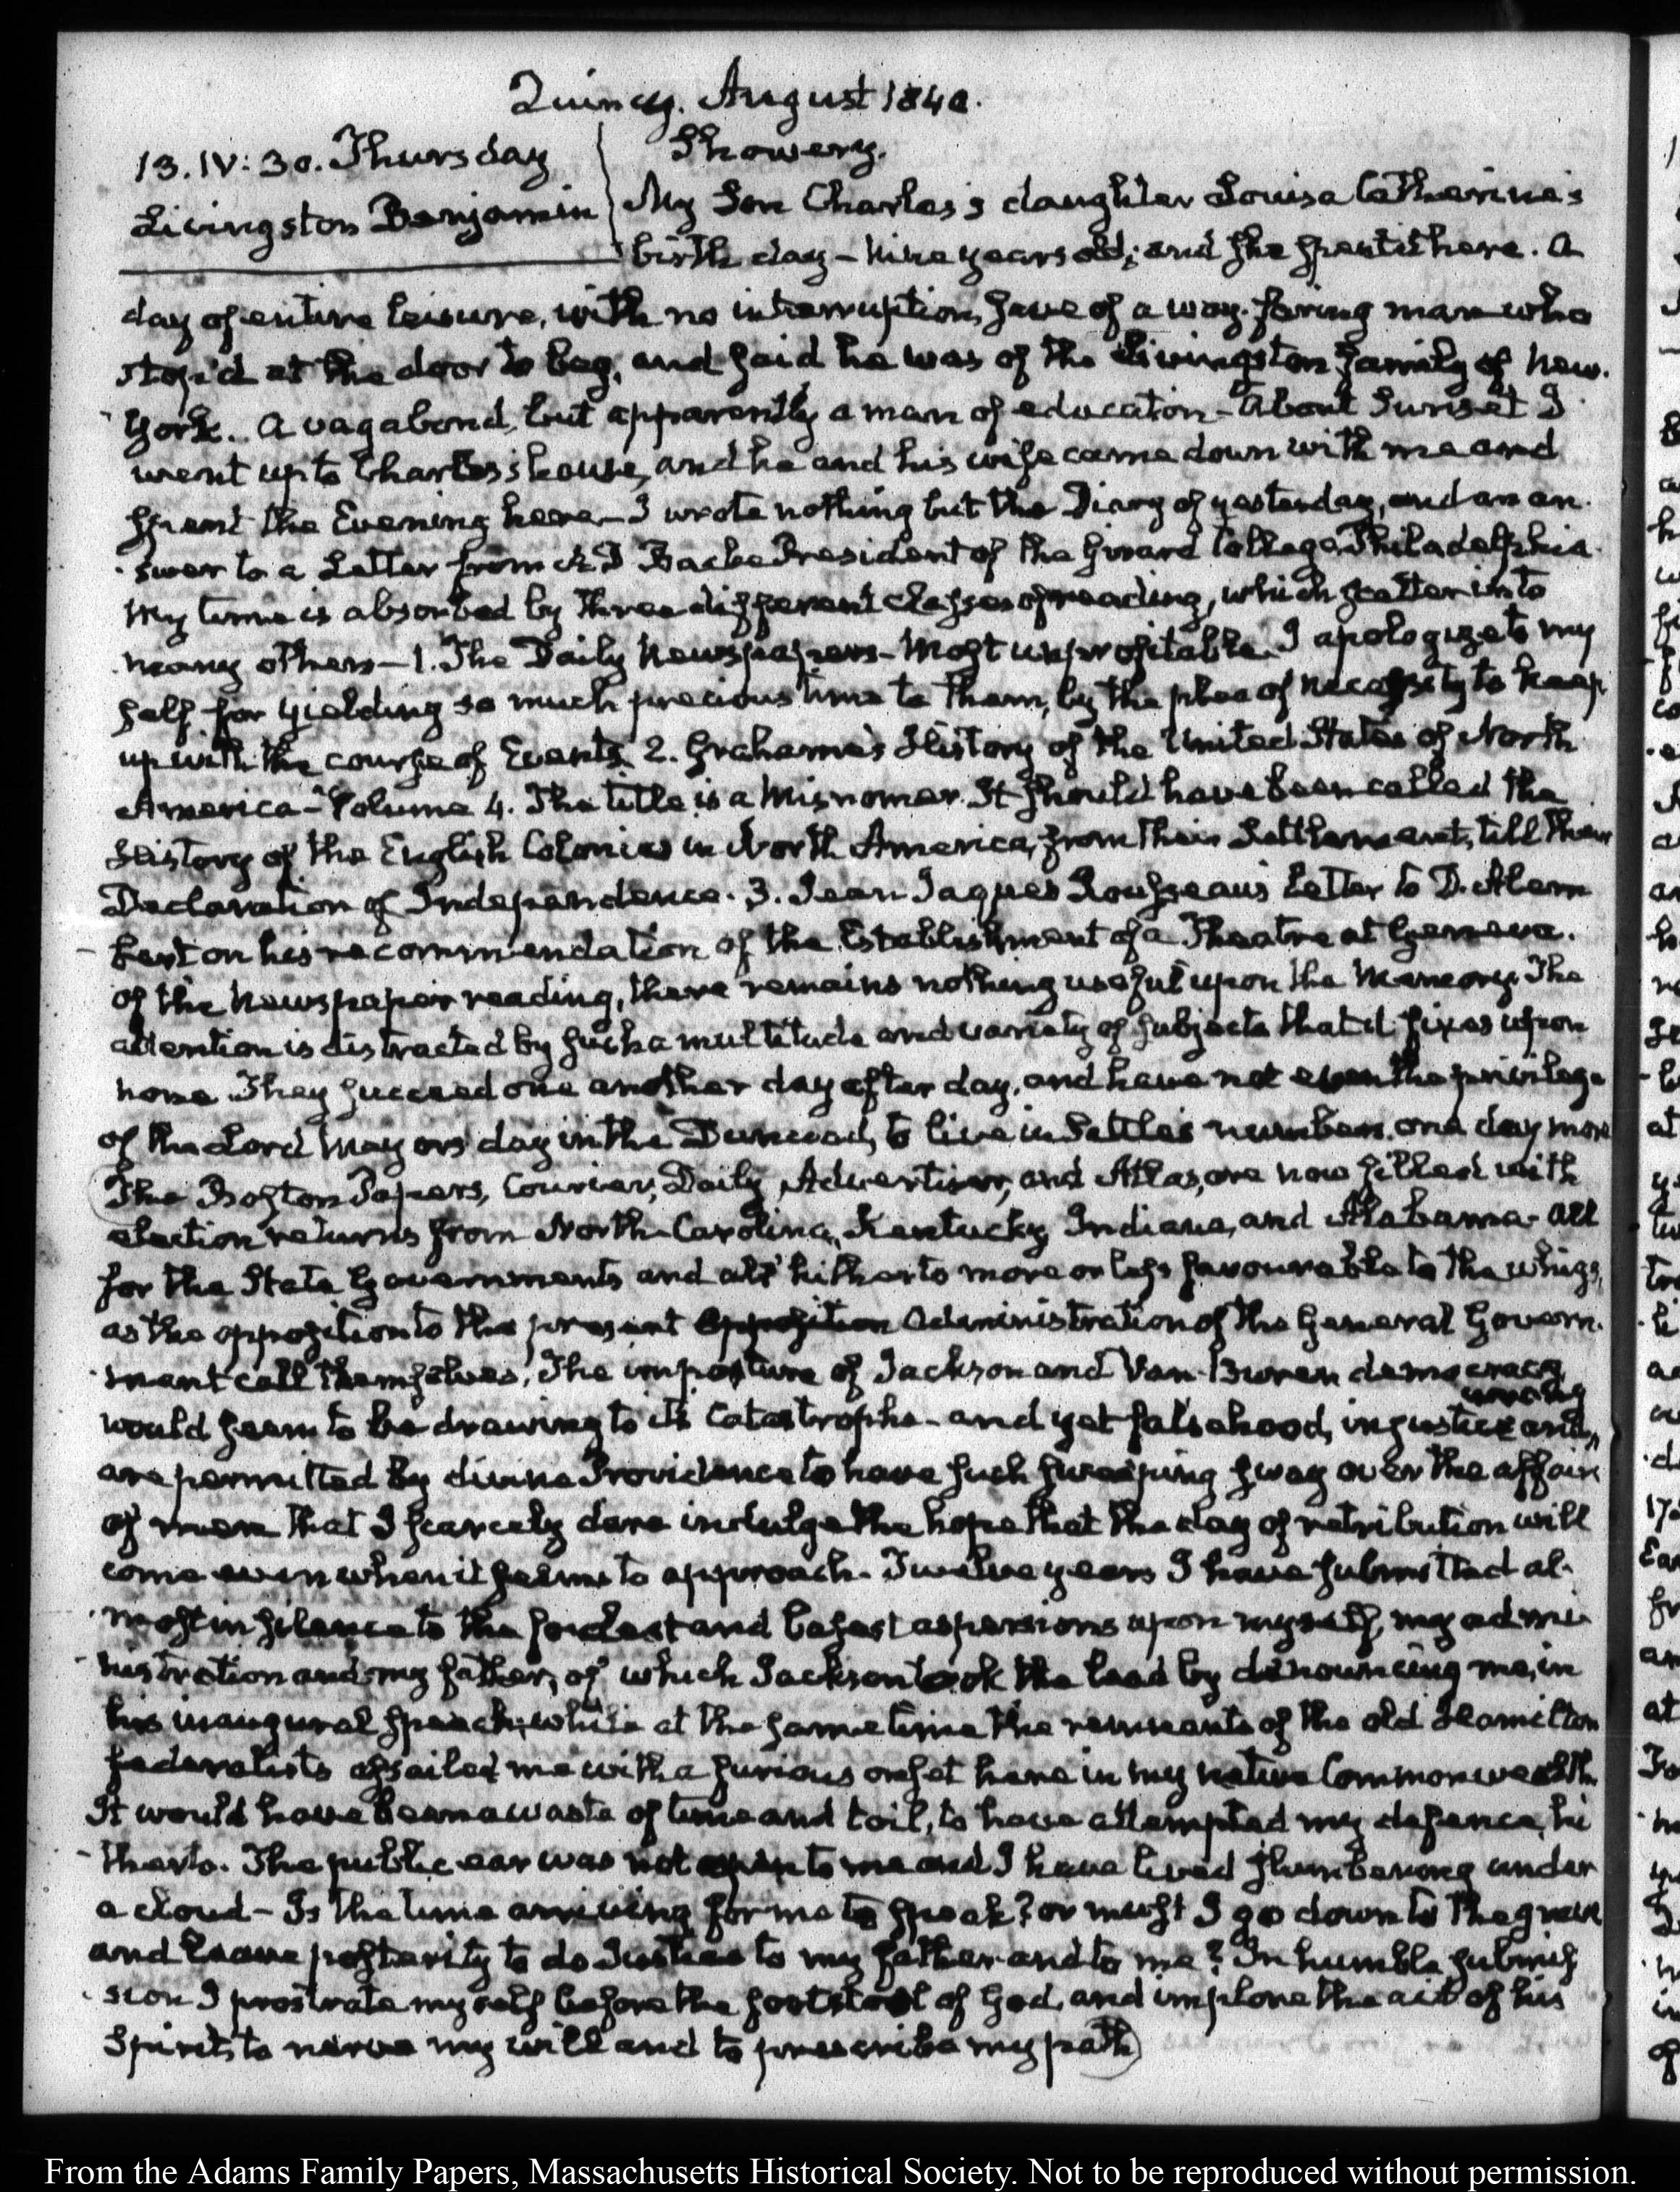 Quincy. August 1840.
13. IV: 30. Thursday
Livingston Benjamin
Showery.
My Son Charles's daughter Louisa Catherine's
birth day – Nine years old; and she spent it here. A
day of entire leisure, with no interruption, save of a way-faring man who
stop'd at the door to beg, and said he was of the Livingston family of New-
York. A vagabond, but apparently a man of education – About Sunset I
went up to Charles's house, and he and his wife came down with me and
spent the Evening here – I wrote nothing but the Diary of yesterday, and an an-
swer to a Letter from A D Bache President of the Girard College, Philadelphia.
My time is absorbed by three different classes of reading, which scatter into
many others – 1. The Daily Newspapers – Most unprofitable. I apologize to my
self for yielding so much precious time to them, by the plea of necessity to keep
up with the course of Events. 2. Grahame's History of the United States of North
America – Volume 4. The title is a Misnomer. It should have been called the
History of the English Colonies in North America, from their Settlement, till their
Declaration of Independence. 3. Jean Jaques Rousseau's Letter to D'Alem-
bert on his recommendation of the Establishment of a Theatre at Geneva.
Of the Newspaper reading, there remains nothing useful upon the Memory. The
attention is distracted by such a multitude and variety of subjects that it fixes upon
none. They succeed one another day after day, and have not even the privilege
of the Lord Mayors day in the Dunciad, to live in Settle's numbers, one day more
The Boston Papers, Courier, Daily Advertiser, and Atlas, are now filled with
election returns from North-Carolina, Kentucky, Indiana, and Alabama – all
for the State Governments and all hitherto more or less favourable to the Whigs,
as the opposition to the present Opposition Administration of the General Govern-
ment call themselves. The imposture of Jackson and Van-Buren democracy
would seem to be drawing to its Catastrophe – and yet falsehood, injustice and
wrong
are permitted by divine Providence to have such sweeping sway over the affairs
of men that I scarcely dare indulge the hope that the day of retribution will
come even when it seems to approach. Twelve years I have submitted al-
most in silence to the foulest and basest aspersions upon myself, my admi-
nistration and my father, of which Jackson took the lead by denouncing me, in
his inaugural speech; while at the same time the remnants of the old Hamilton
federalists assailed me with a furious onset here in my native Commonwealth.
It would have been a waste of time and toil, to have attempted my defence, hi-
therto. The public ear was not open to me and I have lived slumbering under
a cloud – Is the time arriving for me to speak? or must I go down to the grave
and leave posterity to do Justice to my father and to me? In humble submis-
sion I prostrate myself before the footstool of God, and implore the aid of his
Spirit, to nerve my will and to prescribe my path
From the Adams Family Papers, Massachusetts Historical Society. Not to be reproduced without permission.